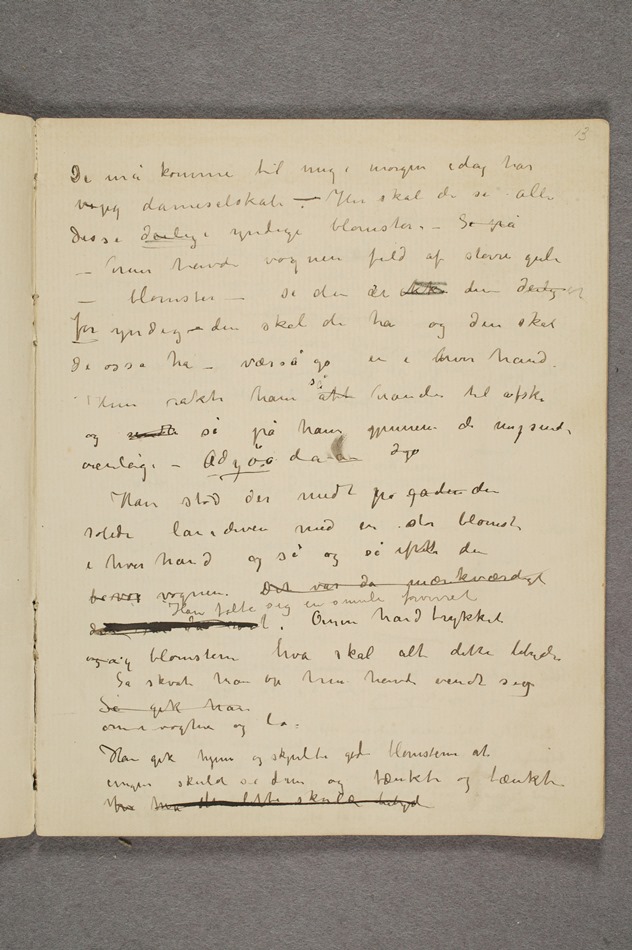 13
De må komme til mig i morgen idag har
jeg dameselskab – Her skal de se alle
disse deilige yndige blomster. – Se på
– hun havde vognen fuld af store gule
– blomster – se den er den deilig
for yndig – den skal de ha og den skal
de osså ha – værså go en i hver hånd.
Hun rakte ham så hånden til afske
og så på ham gjennem de
venlig. – Adyøs da
Han stod der midt på gaden den
solede med en stor blomst
i hver hånd og så og så efter den
vognen. Det var da mærkværdigt
Han følte sig en smule forvirret
Ommen håndtrykket
og blomstene hva skal alt dette betyde
Så skvat han op hun havde vendt sig
Så gik han
om i vognen og lo.
Han gik hjem og skjulte godt blomstene at
ingen skulde se dem og tænkte og tænkte
hva dette skulde betyd